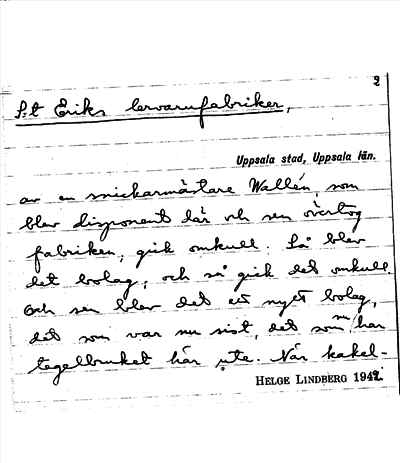 2
S:t Eriks lervarufabriker,
Uppsala stad, Uppsala län.
av en snickarmästare Wallén, som
blev disponent där och sen övertog
fabriken, gick omkull. Så blev
det bolag, och så gick det omkull.
Och sen blev det ett nytt bolag,
det som var nu sist, det som nu har
tegelbruket här ute. När kakel-
HELGE LINDBERG 1942.